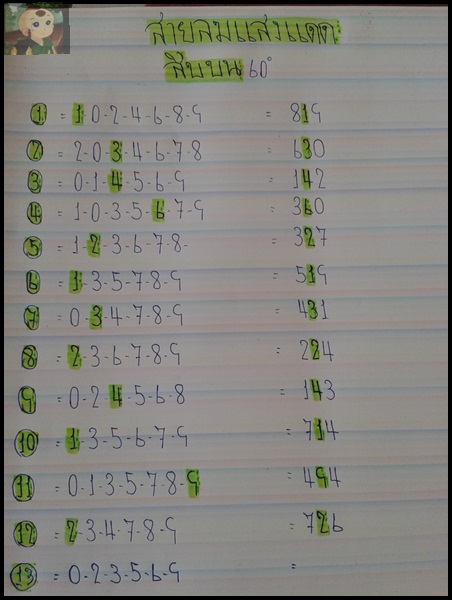 สายลมแสงแดด
สิบบน 60°
1 = 1-0-2-4-6-8-9 = 819
2 = 2-0-3-4-6-7-8 = 630
3 = 0-1-4-5-6-9 = 142
4 = 1-0-3-5-6-7-9 = 360
5 = 1-2-3-6-7-8- = 327
6 = 1-3-5-7-8-9 = 519
7 = 0-3-4-7-8-9 = 431
8 = 2-3-6-7-8-9 = 224
9 = 0-2-4-5-6-8 = 143
10 = 1-3-5-6-7-9 = 714
11 = 0-1-3-5-7-8-9 = 494
12 = 2-3-4-7-8-9 = 726
13 = 0-2-3-5-6-9 =